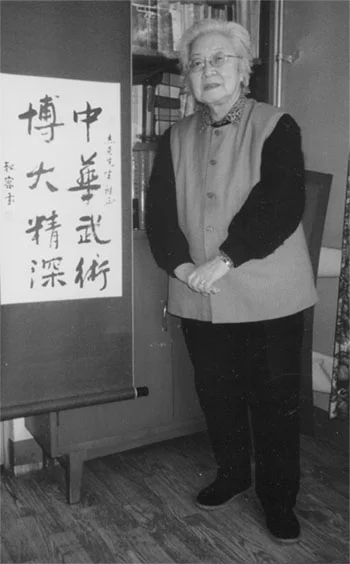 中華武術
博大精深